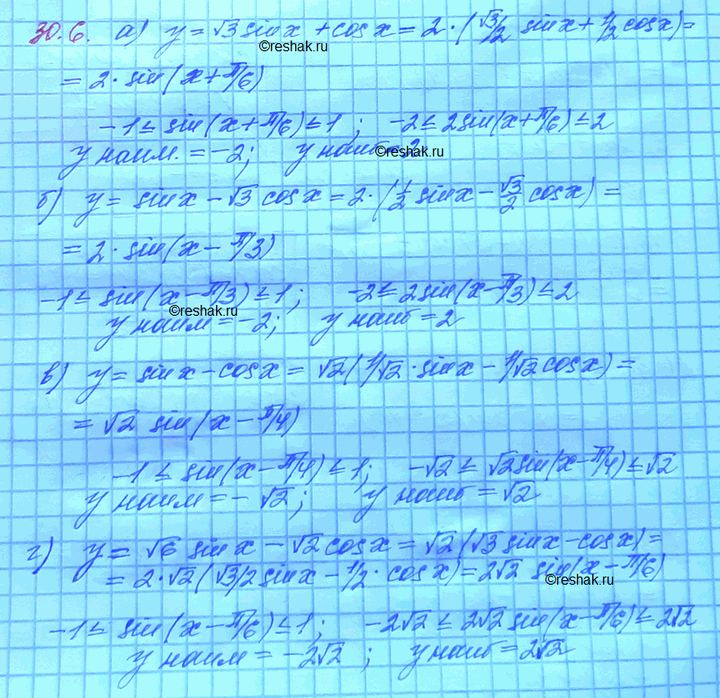 30.6. а) y = √3 sinx + cosx = 2·(√3/2 sinx + 1/2 cosx) =
©reshak.ru
= 2·sin(x+π/6)
-1 ≤ sin(x+π/6) ≤ 1 ; -2 ≤ 2sin(x+π/6) ≤ 2
y наим. = -2; y наиб = 2
©reshak.ru
б) y = sinx - √3 cosx = 2·(1/2 sinx - √3/2 cosx) =
= 2·sin(x - π/3)
-1 ≤ sin(x-π/3) ≤ 1; -2 ≤ 2sin(x-π/3) ≤ 2
©reshak.ru
y наим = -2; y наиб = 2
в) y = sinx - cosx = √2(1/√2·sinx - 1/√2 cosx) =
= √2 sin(x - π/4)
-1 ≤ sin(x-π/4) ≤ 1; -√2 ≤ √2sin(x-π/4) ≤ √2
y наим = -√2; y наиб = √2
г) y = √6 sinx - √2 cosx = √2(√3 sinx - cosx) =
= 2·√2(√3/2 sinx - 1/2·cosx) = 2√2 sin(x-π/6)
©reshak.ru
-1 ≤ sin(x-π/6) ≤ 1; -2√2 ≤ 2√2 sin(x-π/6) ≤ 2√2
y наим = -2√2 ; y наиб = 2√2